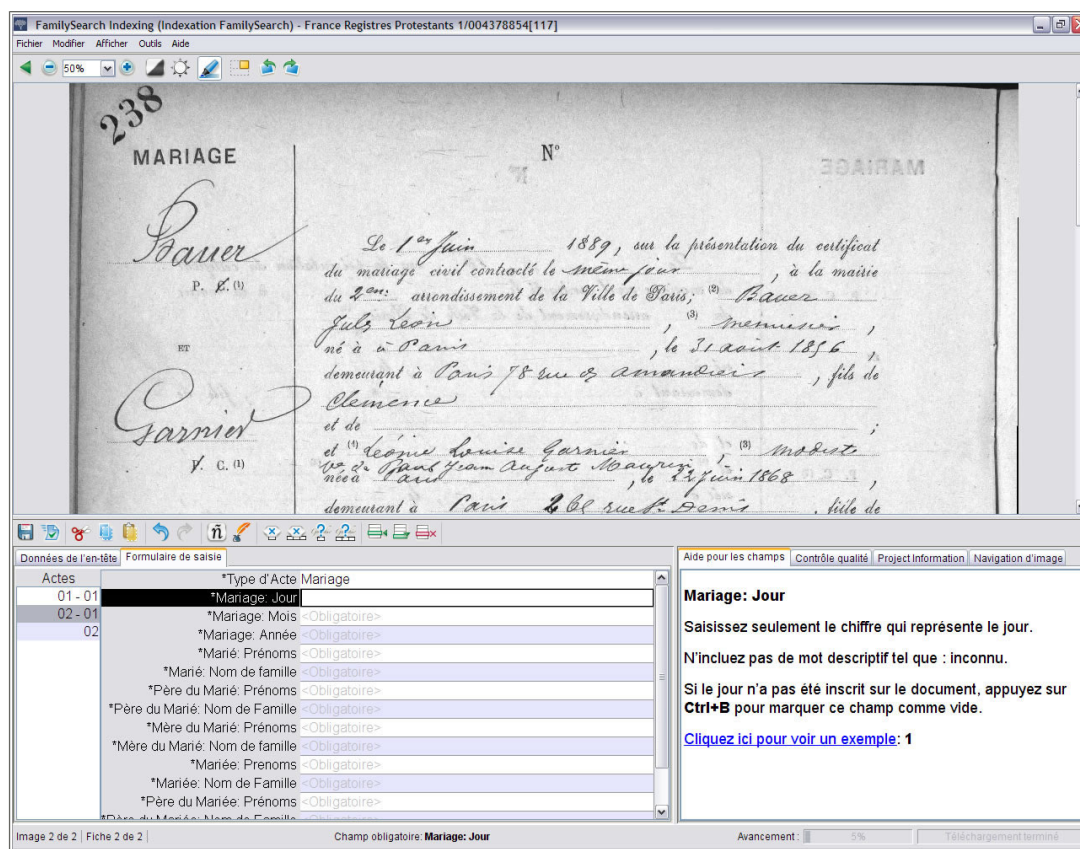 FamilySearch Indexing (Indexation FamilySearch) - France Registres Protestants 1/004378854[117]
Fichier Modifier Afficher Outils Aide
50%
238
MARIAGE
N°
MARIAGE
Bauer
P. C. (1)
ET
Garnier
P. C. (1)
Le 1er Juin 1889, sur la présentation du certificat
du mariage civil contracté le même jour, à la mairie
du 2em: arrondissement de la Ville de Paris; (2) Bauer
Jules Leon, (3) menuisier,
né à à Paris, le 31 aout 1856,
demeurant à Paris 78 rue des amandiers, fils de
Clémence
et de ;
et (4) Léonie Louise Garnier, (3) modiste
Jean August
née à Paris, le 22 juin 1868,
demeurant à Paris rue St Denis, fille de
Données de l'en-tête Formulaire de saisie
Actes
01 - 01
02 - 01
02
*Type d'Acte Mariage
*Mariage: Jour
*Mariage: Mois <Obligatoire>
*Mariage: Année <Obligatoire>
*Marié: Prénoms <Obligatoire>
*Marié: Nom de famille <Obligatoire>
*Père du Marié: Prénoms <Obligatoire>
*Père du Marié: Nom de Famille <Obligatoire>
*Mère du Marié: Prénoms <Obligatoire>
*Mère du Marié: Nom de famille <Obligatoire>
*Mariée: Prenoms <Obligatoire>
*Mariée: Nom de Famille <Obligatoire>
*Père du Mariée: Prénoms <Obligatoire>
*Père du Mariée: Nom de Famille <Obligatoire>
Aide pour les champs Contrôle qualité Project Information Navigation d'image
Mariage: Jour
Saisissez seulement le chiffre qui représente le jour.
N'incluez pas de mot descriptif tel que : inconnu.
Si le jour n'a pas été inscrit sur le document, appuyez sur
Ctrl+B pour marquer ce champ comme vide.
Cliquez ici pour voir un exemple: 1
Image 2 de 2 Fiche 2 de 2 Champ obligatoire: Mariage: Jour Avancement: 5% Téléchargement terminé